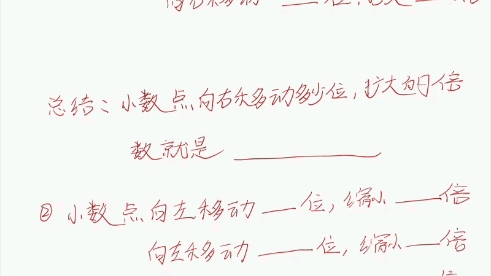 向右移动 ___ 位，扩大 ___ 倍
总结：小数点向右移动多少位，扩大的倍
数就是 ________
② 小数点向左移动 ___ 位，缩小 ___ 倍
向左移动 ___ 位，缩小 ___ 倍